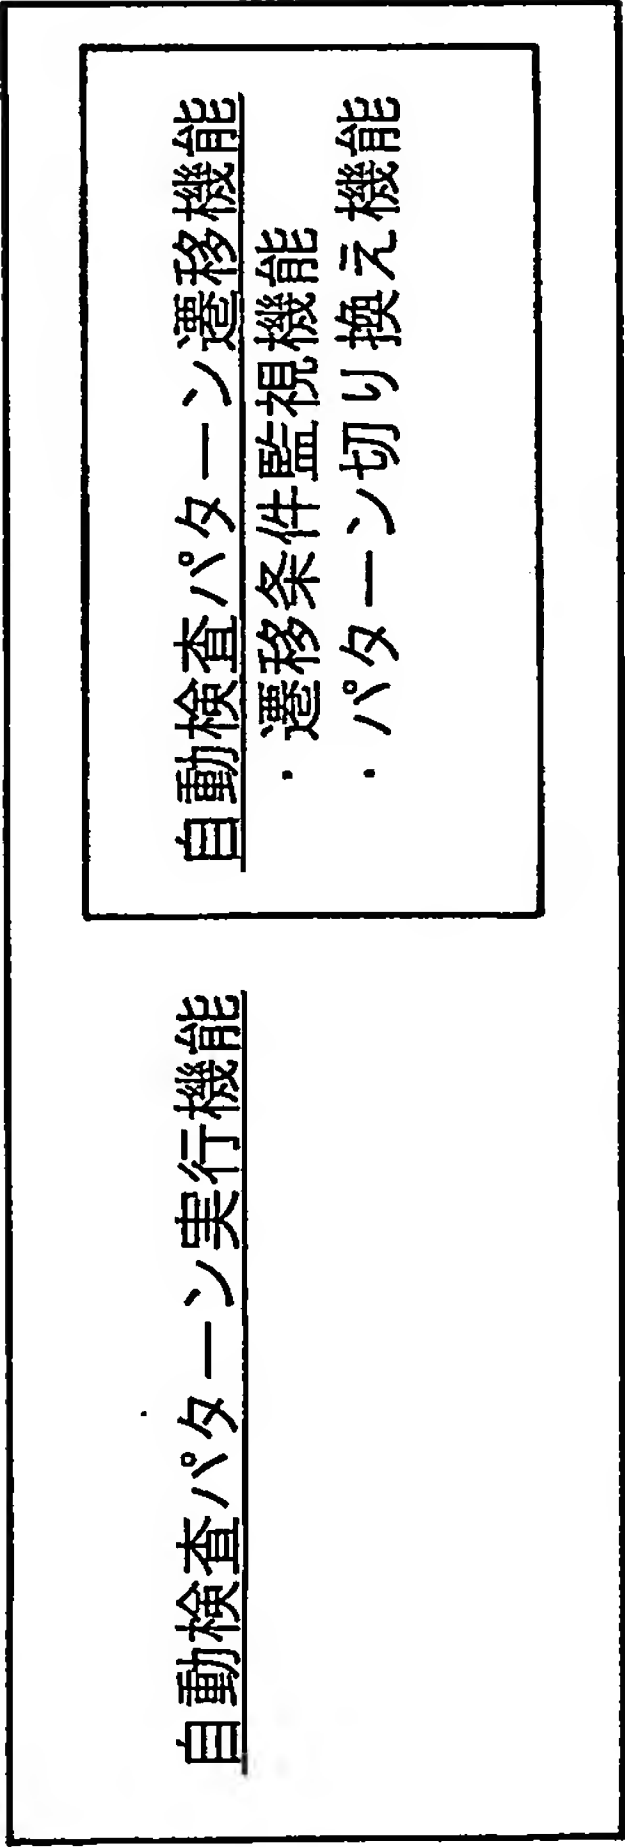 自動検査パターン実行機能
自動検査パターン遷移機能
・遷移条件監視機能
・パターン切り換え機能